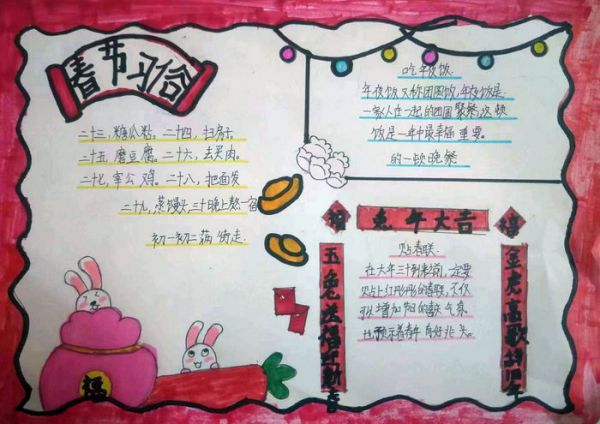 春节习俗
二十三，糖瓜粘，二十四，扫房子
二十五 磨豆腐。二十六，去买肉。
二十七，宰公鸡。二十八，把面发
二十九，蒸馒头，三十晚上熬一宿
初一初二满街走。
吃年夜饭
年夜饭又称团圆饭，年夜饭是
一家人在一起的团圆聚餐这顿
饭是一年中最幸福 重要
的一顿晚餐
福
兔年大吉
禧
贴春联
在大年三十到来之前，一定要
贴上红彤彤的春联，不仅
可以增加节日的喜庆气氛
也预示着春年有好兆头。
玉兔送福
金虎高歌辞旧年
福